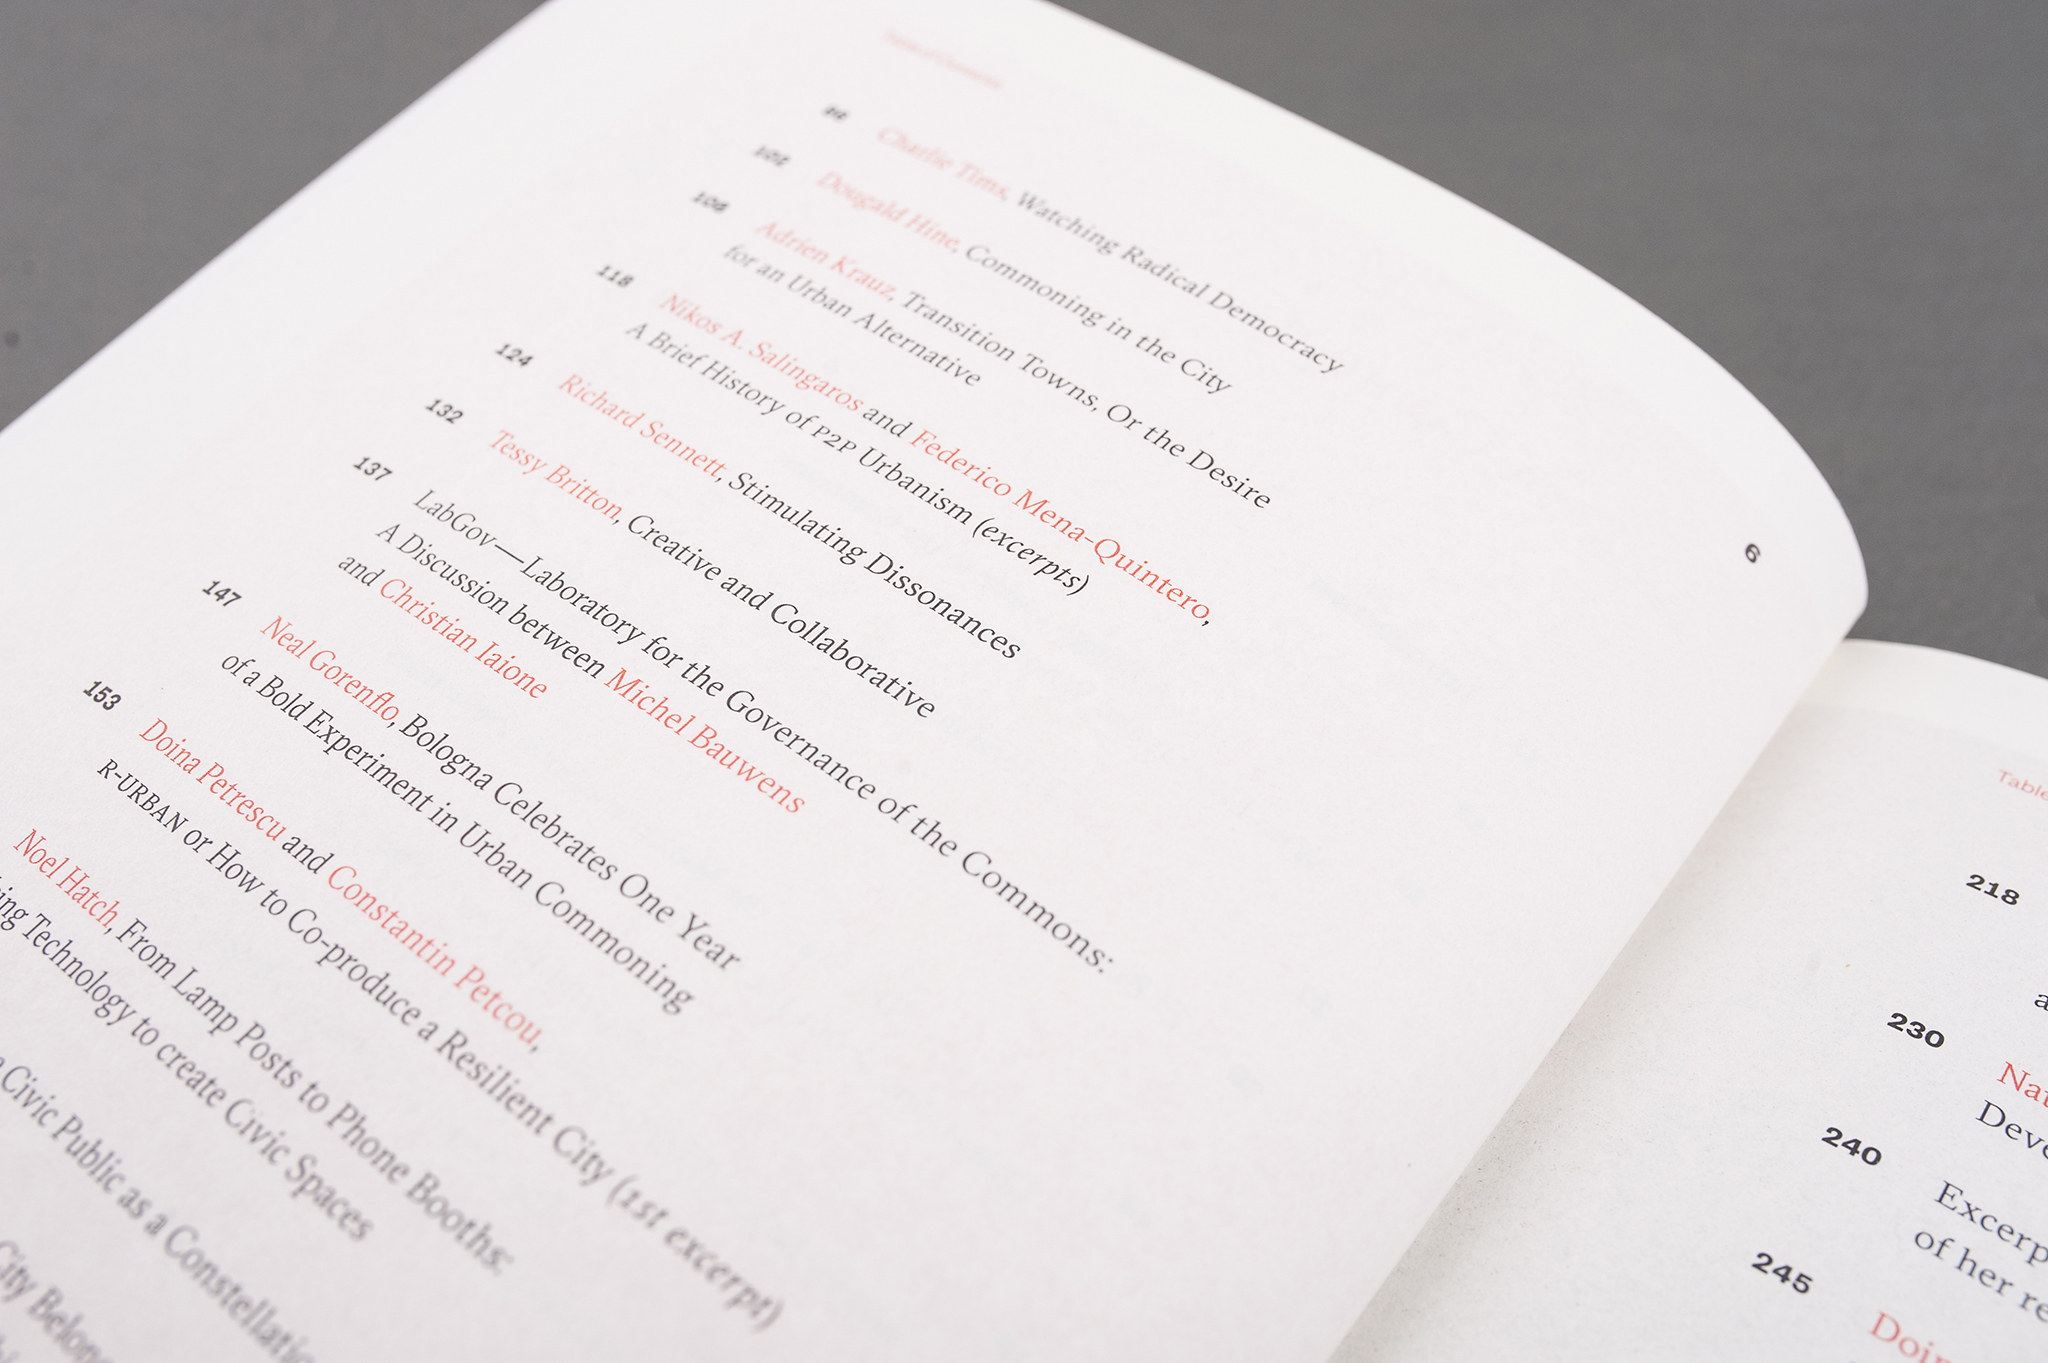 Table of Contents
Charlie Tims, Watching Radical Democracy
102 Dougald Hine, Commoning in the City
106 Adrien Krauz, Transition Towns, Or the Desire
for an Urban Alternative
118 Nikos A. Salingaros and Federico Mena-Quintero,
A Brief History of P2P Urbanism (excerpts)
124 Richard Sennett, Stimulating Dissonances
132 Tessy Britton, Creative and Collaborative
137 LabGov—Laboratory for the Governance of the Commons:
A Discussion between Michel Bauwens
and Christian Iaione
147 Neal Gorenflo, Bologna Celebrates One Year
of a Bold Experiment in Urban Commoning
153 Doina Petrescu and Constantin Petcou,
R-URBAN or How to Co-produce a Resilient City (1st excerpt)
Noel Hatch, From Lamp Posts to Phone Booths:
Technology to create Civic Spaces
Civic Public as a
City
6
Table
218
230
240
Excerp
of her re
245